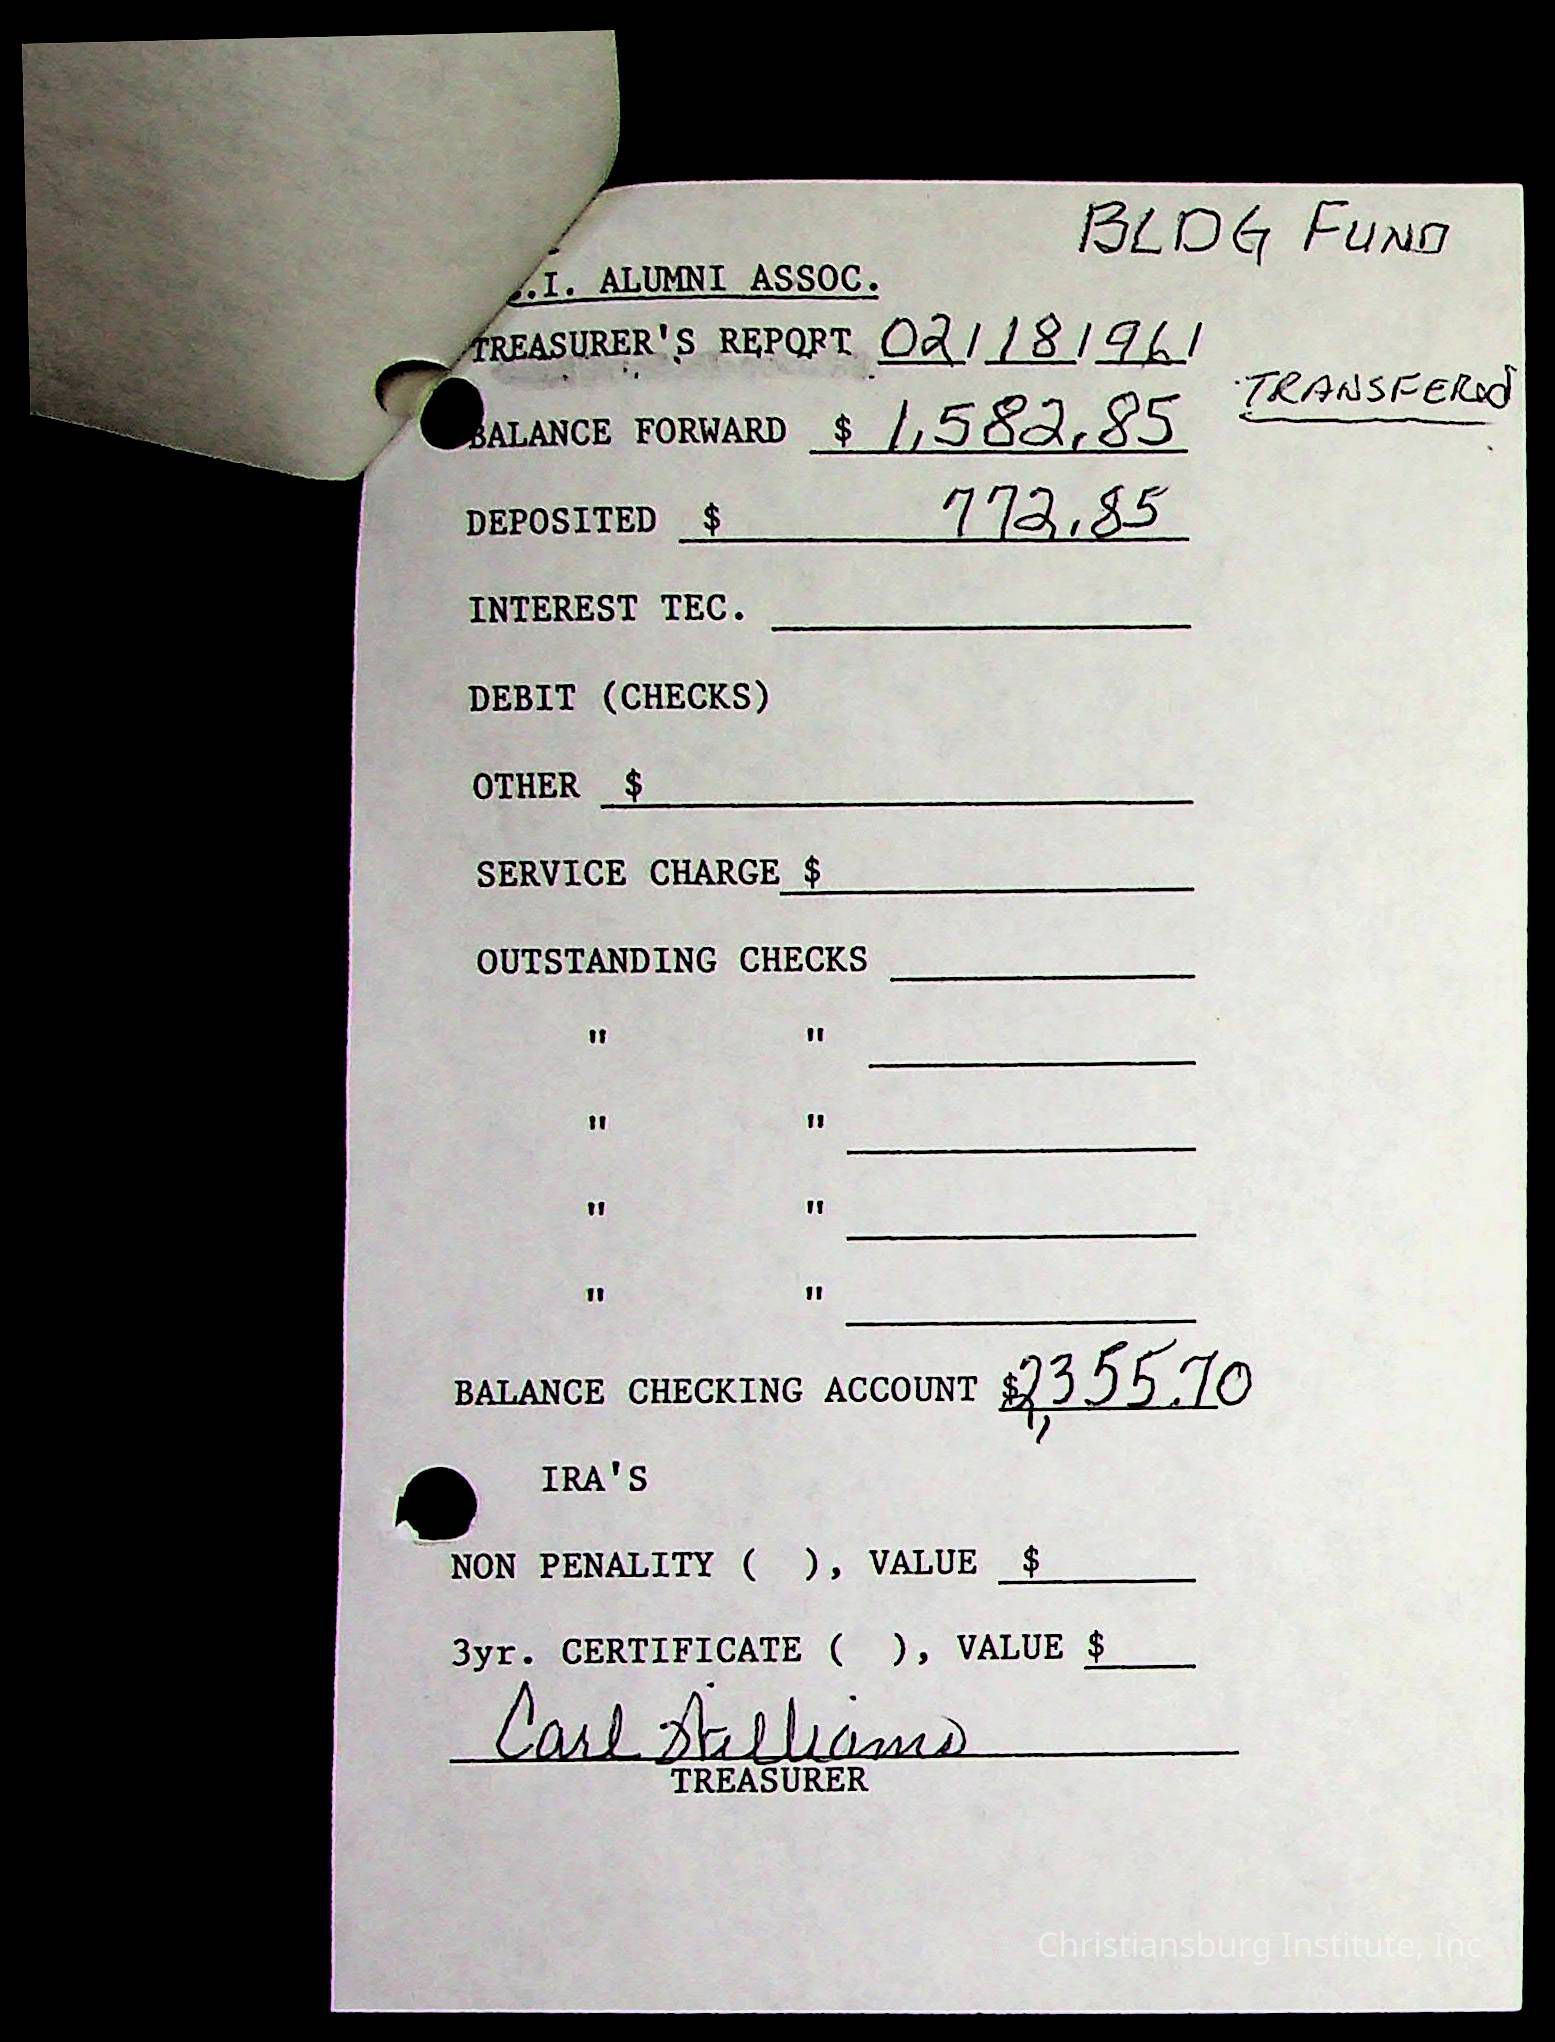 BLDG FUND
.I. ALUMNI ASSOC.
TREASURER'S REPORT 02/18/96/
TRANSFERed
BALANCE FORWARD $ 1,582.85
DEPOSITED $ 772.85
INTEREST TEC.
DEBIT (CHECKS)
OTHER $
SERVICE CHARGE $
OUTSTANDING CHECKS
" "
" "
" "
" "
BALANCE CHECKING ACCOUNT $2,355.70
IRA'S
NON PENALITY ( ), VALUE $
3yr. CERTIFICATE ( ), VALUE $
Carl Williams
TREASURER
Christiansburg Institute, Inc